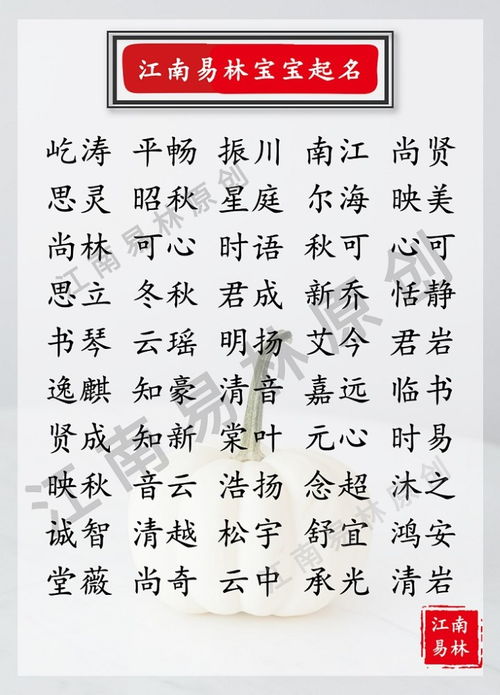 江南易林宝宝起名
屹涛 平畅 振川 南江 尚贤
思灵 昭秋 星庭 尔海 映美
尚林 可心 时语 秋可 心可
思立 冬秋 君成 新乔 恬静
书琴 云瑶 明扬 艾今 君岩
逸麒 知豪 清音 嘉远 临书
贤成 知新 棠叶 元心 时易
映秋 音云 浩扬 念超 沐之
诚智 清越 松宇 舒宜 鸿安
堂薇 尚奇 云中 承光 清岩
江南易林原创
江南易林原创
江南易林原创
江南
易林